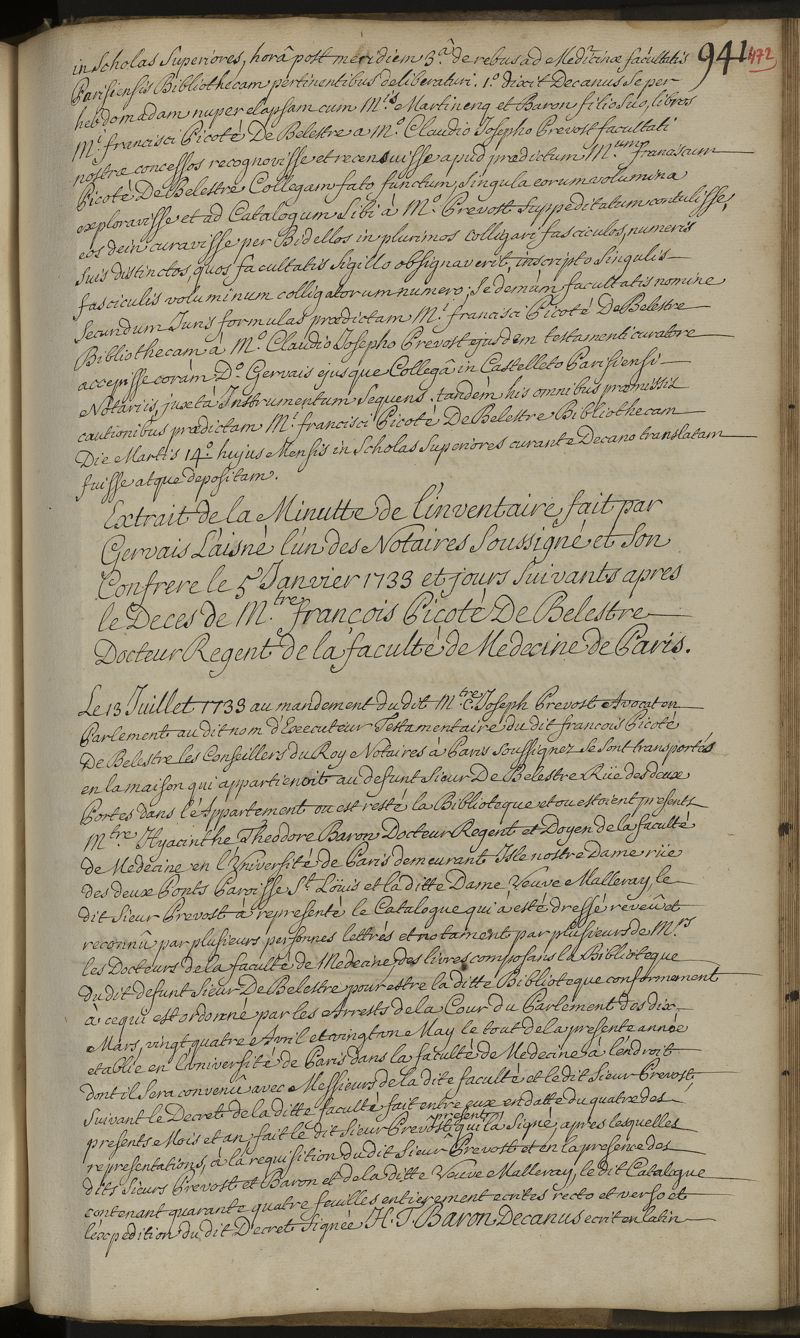 941 472
in Scholas Superiores, horâ post meridiem 3.â de rebus ad Medicinæ facultatis
Parisiensis Bibliothecam pertinentibus deliberaturi. 1.º dixit Decanus Se per
hebdomadam nuper elapsam cum M.is Martinenq et Baron filio Suo, libros
M.i francisci Picoté De Belestre a M.º Claudio Josepho Prevost facultati
nostræ concessos recognovisse et recensuisse apud prædictum M.um franciscum
Picoté De Belestre Collegam fato functum, Singula eorum volumina
exploravisse et ad Catalogum Sibi à M.º Prevost Suppeditatum contulisse,
eos dein curavisse per Bidellos in plurimos colligari fasciculos, numeris
Suis distinctos, quos facultatis Sigillo obsignaverit, inscripto Singulis
fasciculis voluminum colligatorum numero; Se demùm facultatis nomine
Secundum Juris formulas prædictam M.i francisci Picoté De Belestre
Bibliothecam à M.º Claudio Josepho Prevost ejusdem testamenti curatore
accepisse coràm D.º Gervais ejusque Collegâ in Castelleto Parisiensi
Notariis, juxtà Instrumentum Sequens. tandem his omnibus præmissis
cautionibus prædictam M.i francisci Picoté De Belestre Bibliothecam
Die Martis 14.º hujus Mensis in Scholas Superiores curante Decano translatam
fuisse atque depositam.
Extrait de la Minutte de l'inventaire fait par
Gervais L'aisné l'un des Notaires Soussigné et Son
Confrere le 5 Janvier 1733 et jours Suivants apres
le Deces de M.tre françois Picoté De Belestre
Docteur Regent de la faculté de Medecine de Paris.
Le 13 Juillet 1733 au mandement dudit M.tre C. Joseph Prevost Avocat en
Parlement audit nom d'Executeur Testamentaire du dit francois Picoté
De Belestre les Conseillers du Roy Notaires a Paris Soussignez Se Sont transportés
en la maison qui appartienoit au defunt Sieur De Belestre Rüe des deux
Portes dans l'Appartement ou est resté la Biblioteque et ou estoient presents
M.tre Hyacinthe Theodore Baron Docteur Regent et Doyen de la faculté
de Medecine en l'Université de Paris demeurant Isle nostre Dame rüe
des deux Ponts Paroisse S.t Loüis et la ditte Dame Veuve Malleray, le
dit Sieur Prevost à representé le Catalogue qui a esté dressé reveû et
reconnû par plusieurs personnes lettrés et notament par plusieurs de M.rs
les Docteurs de la faculté de Medecine, des livres composans la Biblioteque
du dit defunt Sieur De Belestre pour estre la ditte Biblioteque conformement
à ce qui est ordonné par les Arrests de la Cour du Parlement des dix
Mars, vingt quatre Avril et vingt un May le tout de la presente année
etablie en l'université de Paris dans la faculté de Medecine à l'endroit
dont il Sera convenû avec Messieurs de la dite faculté et le dit Sieur Prevost,
Suivant le Decret de la ditte faculté fait entre eux en datte du quatre des
presents Mois et an, fait le dit Sieur Prevôst present qui l'a Signé, apres lesquelles
representations, à la requisition du dit Sieur Prevost et en la presence des
dits Sieurs Prevost et Baron et de la ditte Veuve Malleray, le dit Catalogue
contenant quarante quatre feuilles entierement ecrites recto et verso et
l'expedition du dit Decret Signée H. T. Baron Decanus ecrit en latin